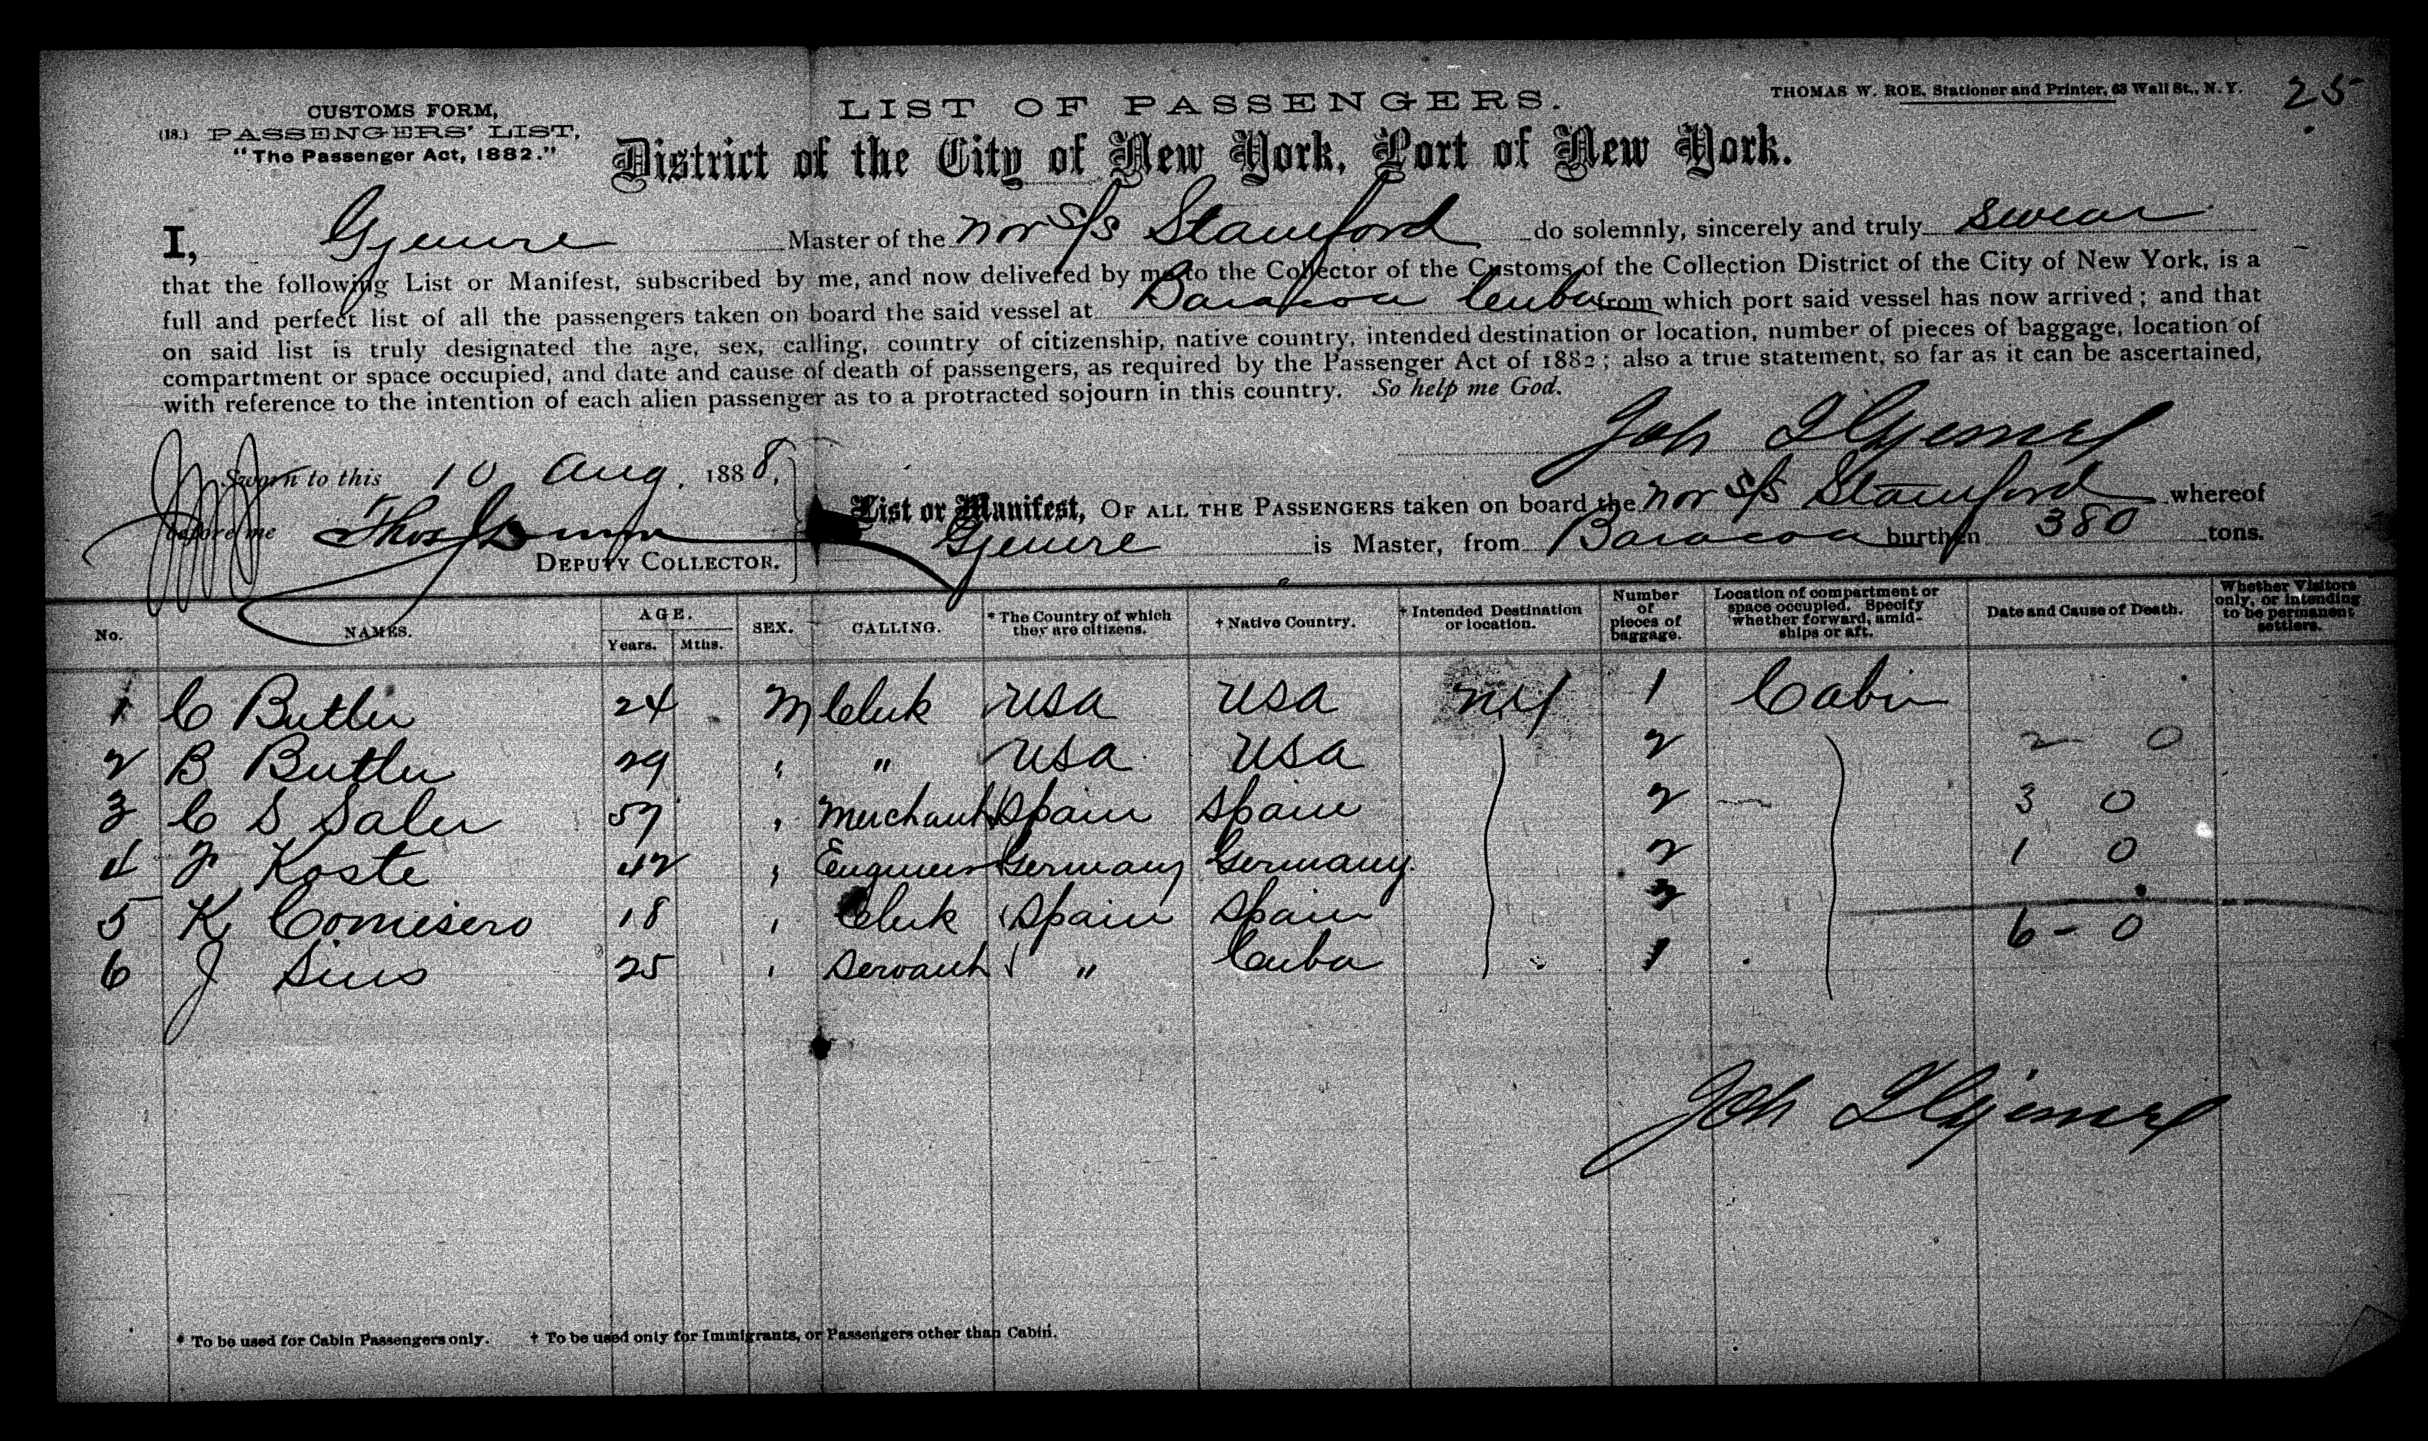 THOMAS W. ROE, Stationer and Printer, 63 Wall St., N.Y. 25
CUSTOMS FORM,
(18.) PASSENGERS' LIST,
"The Passenger Act, 1882."
LIST OF PASSENGERS.
District of the City of New York, Port of New York.
I, Gjemre Master of the nor S/S Stamford do solemnly, sincerely and truly swear
that the following List or Manifest, subscribed by me, and now delivered by me to the Collector of the Customs of the Collection District of the City of New York, is a
full and perfect list of all the passengers taken on board the said vessel at Baracoa Cuba from which port said vessel has now arrived; and that
on said list is truly designated the age, sex, calling, country of citizenship, native country, intended destination or location, number of pieces of baggage, location of
compartment or space occupied, and date and cause of death of passengers, as required by the Passenger Act of 1882; also a true statement, so far as it can be ascertained,
with reference to the intention of each alien passenger as to a protracted sojourn in this country. So help me God.
Joh Gjemre
Sworn to this 10 Aug. 1888,
before me Thos
DEPUTY COLLECTOR.
List or Manifest, OF ALL THE PASSENGERS taken on board the nor S/S Stamford whereof
Gjemre is Master, from Baracoa burthen 380 tons.
No. NAMES. AGE. Years. Mths. SEX. CALLING. * The Country of which they are citizens. † Native Country. † Intended Destination or location. Number of pieces of baggage. Location of compartment or space occupied. Specify whether forward, amidships or aft. Date and Cause of Death. Whether Visitors only, or intending to be permanent settlers.
1 C Butler 24 M Clerk USA USA NY 1 Cabin
2 B Butler 29 " " USA USA 2 2 - 0
3 C S Saler 57 " Merchant Spain Spain 2 3 0
4 F Koste 42 " Engineer Germany Germany 2 1 0
5 K Comisero 18 " Clerk Spain Spain 2 6 - 0
6 J Sius 25 " Servant " Cuba 1
Joh Gjemre
* To be used for Cabin Passengers only. † To be used only for Immigrants, or Passengers other than Cabin.